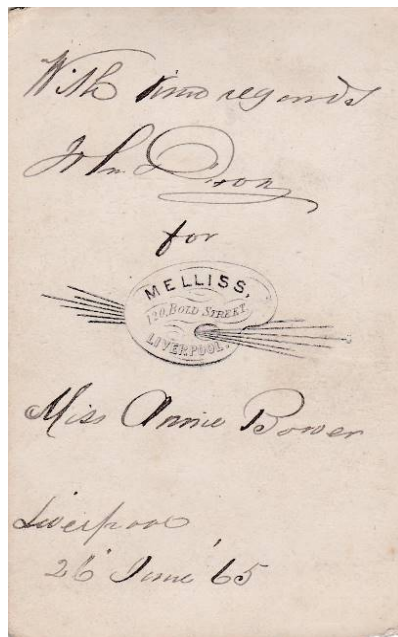 With kind regards
John Dixon
for
MELLISS,
120, BOLD STREET,
LIVERPOOL.
Miss Annie Bower
Liverpool
26 June '65